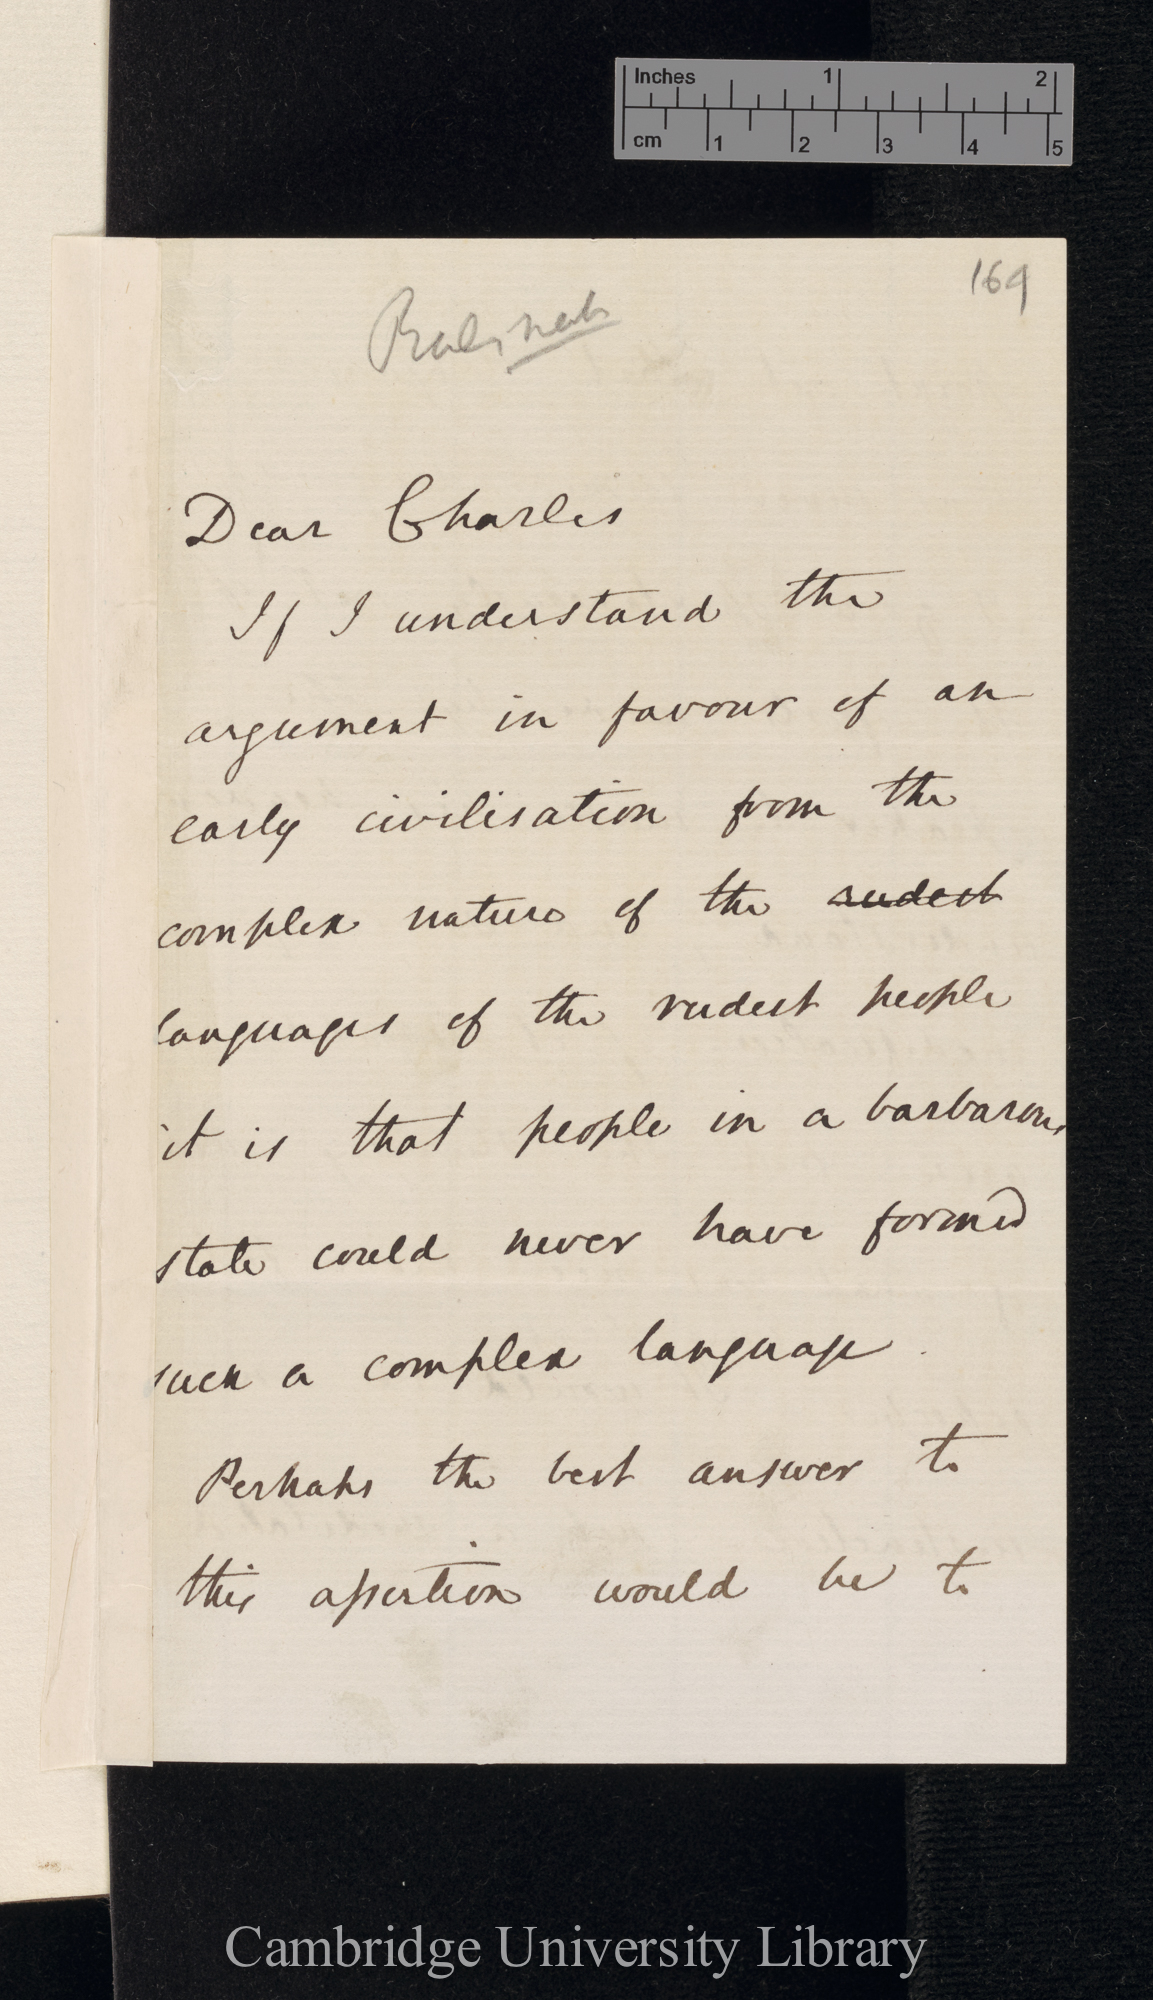 Inches 1 2
cm 1 2 3 4 5
169
Dear Charles
If I understand the
argument in favour of an
early civilisation from the
complex nature of the rudest
languages of the rudest people
it is that people in a barbarous
state could never have formed
such a complex language.
Perhaps the best answer to
this assertion would be to
Cambridge University Library